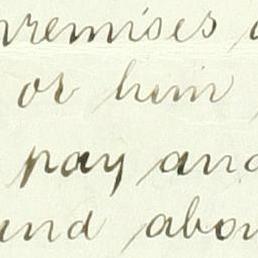 premises a
or him
pay and
and abov